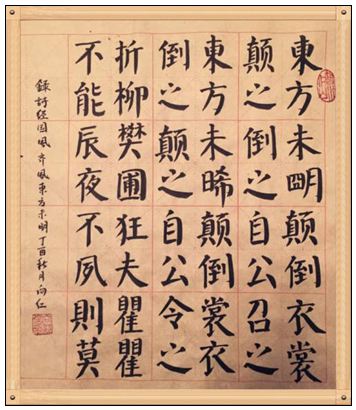 東方未明颠倒衣裳
颠之倒之自公召之
東方未晞颠倒裳衣
倒之颠之自公令之
折柳樊圃狂夫瞿瞿
不能辰夜不夙則莫
録詩经国風齐風東方未明丁酉秋月向仁